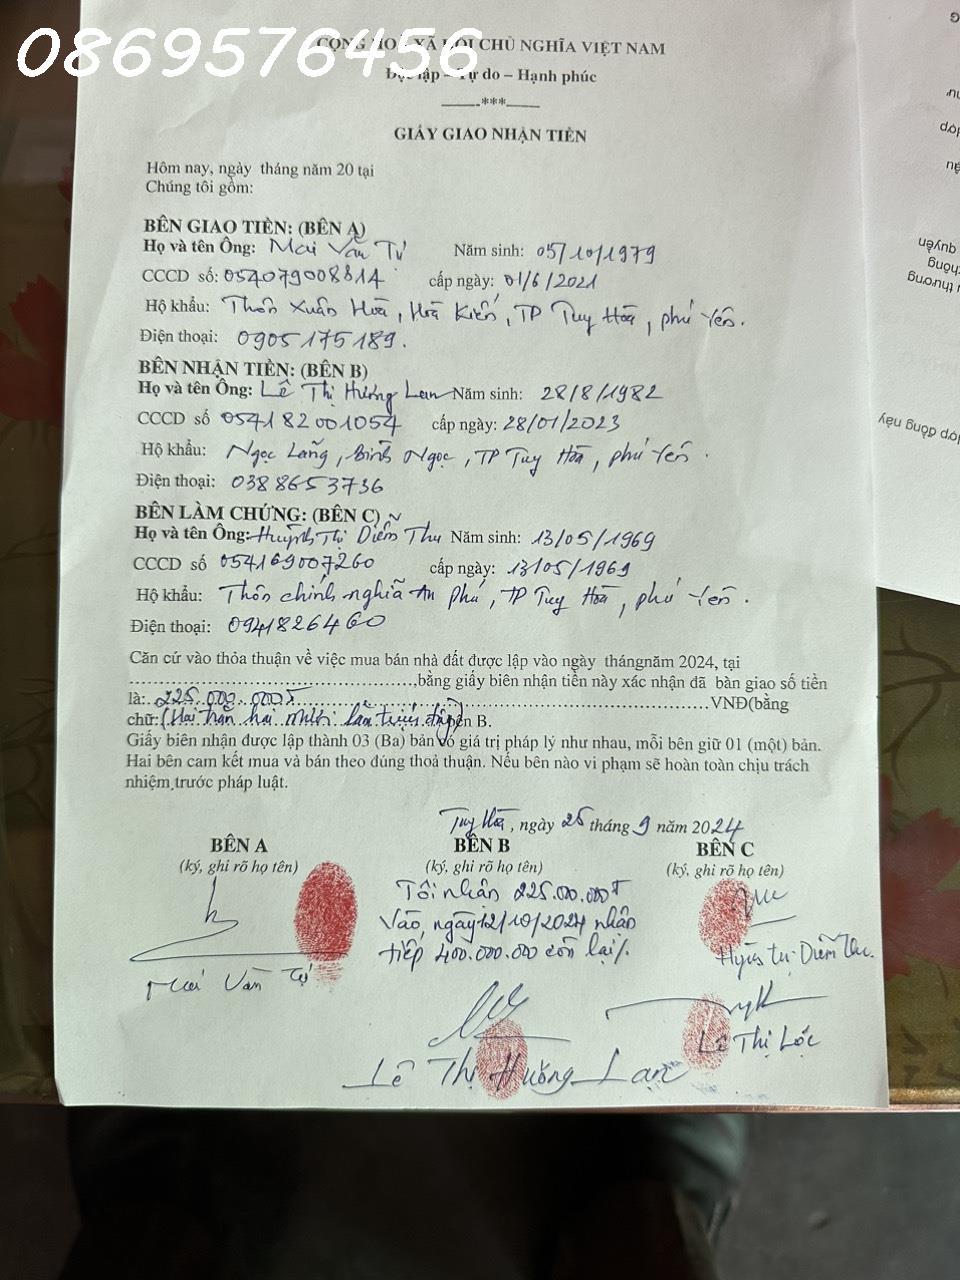 0869576456
CỘNG HOÀ XÃ HỘI CHỦ NGHĨA VIỆT NAM
Độc lập – Tự do – Hạnh phúc
***
GIẤY GIAO NHẬN TIỀN
Hôm nay, ngày tháng năm 20 tại
Chúng tôi gồm:
BÊN GIAO TIỀN: (BÊN A)
Họ và tên Ông: Mai Văn Tự Năm sinh: 05/10/1979
CCCD số: 054079008814 cấp ngày: 01/6/2021
Hộ khẩu: Thôn Xuân Hoà, Hoà Kiến, TP Tuy Hoà, phú Yên.
Điện thoại: 0905175189.
BÊN NHẬN TIỀN: (BÊN B)
Họ và tên Ông: Lê Thị Hương Lan Năm sinh: 28/8/1982
CCCD số 054182001054 cấp ngày: 28/01/2023
Hộ khẩu: Ngọc Lãng, Bình Ngọc, TP Tuy Hoà, phú Yên.
Điện thoại: 0388653736
BÊN LÀM CHỨNG: (BÊN C)
Họ và tên Ông: Huỳnh Thị Diễm Thu Năm sinh: 13/05/1969
CCCD số 054169007260 cấp ngày: 13/05/1969
Hộ khẩu: Thôn chính nghĩa An phú, TP Tuy Hoà, phú Yên.
Điện thoại: 0941826460
Căn cứ vào thỏa thuận về việc mua bán nhà đất được lập vào ngày thángnăm 2024, tại
,bằng giấy biên nhận tiền này xác nhận đã bàn giao số tiền
là: 225.000.000đ VNĐ(bằng
chữ: (Hai trăm hai mươi lăm triệu B.
Giấy biên nhận được lập thành 03 (Ba) bản có giá trị pháp lý như nhau, mỗi bên giữ 01 (một) bản.
Hai bên cam kết mua và bán theo đúng thoả thuận. Nếu bên nào vi phạm sẽ hoàn toàn chịu trách
nhiệm trước pháp luật.
Tuy Hoà, ngày 25 tháng 9 năm 2024
BÊN A BÊN B BÊN C
(ký, ghi rõ họ tên) (ký, ghi rõ họ tên) (ký, ghi rõ họ tên)
Tôi nhận 225.000.000đ
Vào, ngày 12/10/2024 nhận
tiếp 400.000.000 còn lại/.
Mai Văn Tự
Thị Diễm Thu.
Lê Thị Lộc
Lê Thị Hương Lan